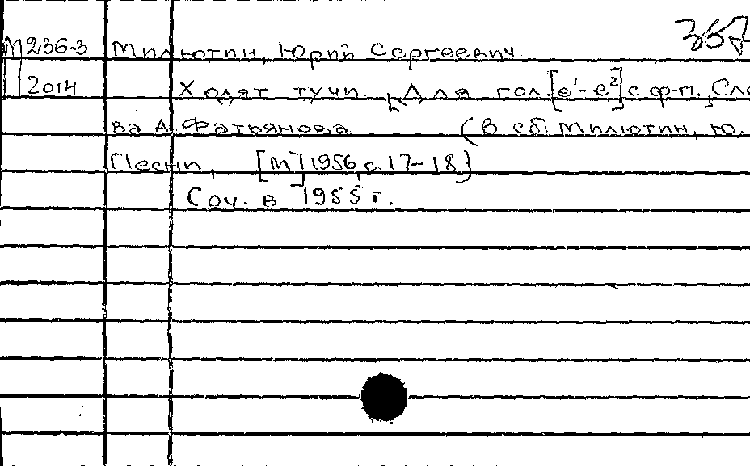 357
М236-3 Милютин, Юрий Сергеевич.
2014 Ходят тучи. [Для гол. [e¹-e²] с ф-п. Сло
ва А. Фатьянова (В сб.: Милютин, Ю.
Песни, [М] 1956, с. 17-18)
Соч. в 1955 г.